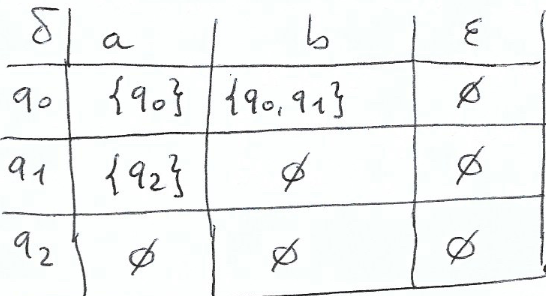 δ a b ε
q0 {q0} {q0,q1} ∅
q1 {q2} ∅ ∅
q2 ∅ ∅ ∅